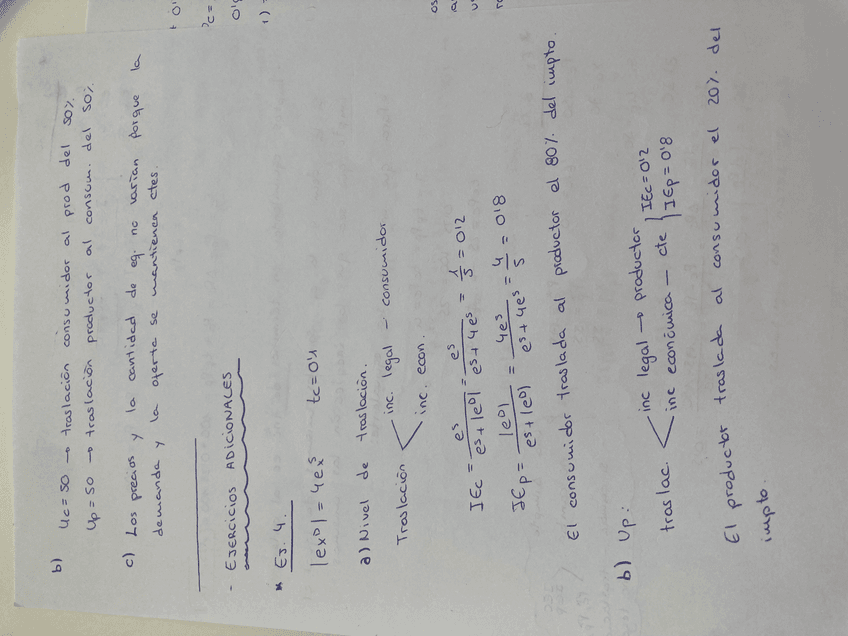 b) Uc = 50 → traslación consumidor al prod del 50%
Up = 50 → traslación productor al consum. del 50%
c) Los precios y la cantidad de eq. no varían porque la
demanda y la oferta se mantienen ctes.
- EJERCICIOS ADICIONALES
* EJ. 4.
|exᴰ| = 4eₓˢ tc = 0'1
a) Nivel de traslación.
Traslación inc. legal - consumidor
inc. econ.
IEc = eˢ / (eˢ + |eᴰ|) = eˢ / (eˢ + 4eˢ) = 1/5 = 0'2
IEp = |eᴰ| / (eˢ + |eᴰ|) = 4eˢ / (eˢ + 4eˢ) = 4/5 = 0'8
El consumidor traslada al productor el 80% del impto.
b) Up:
traslac. inc legal → productor
inc económica - cte IEc = 0'2
IEp = 0'8
El productor traslada al consumidor el 20% del
impto.